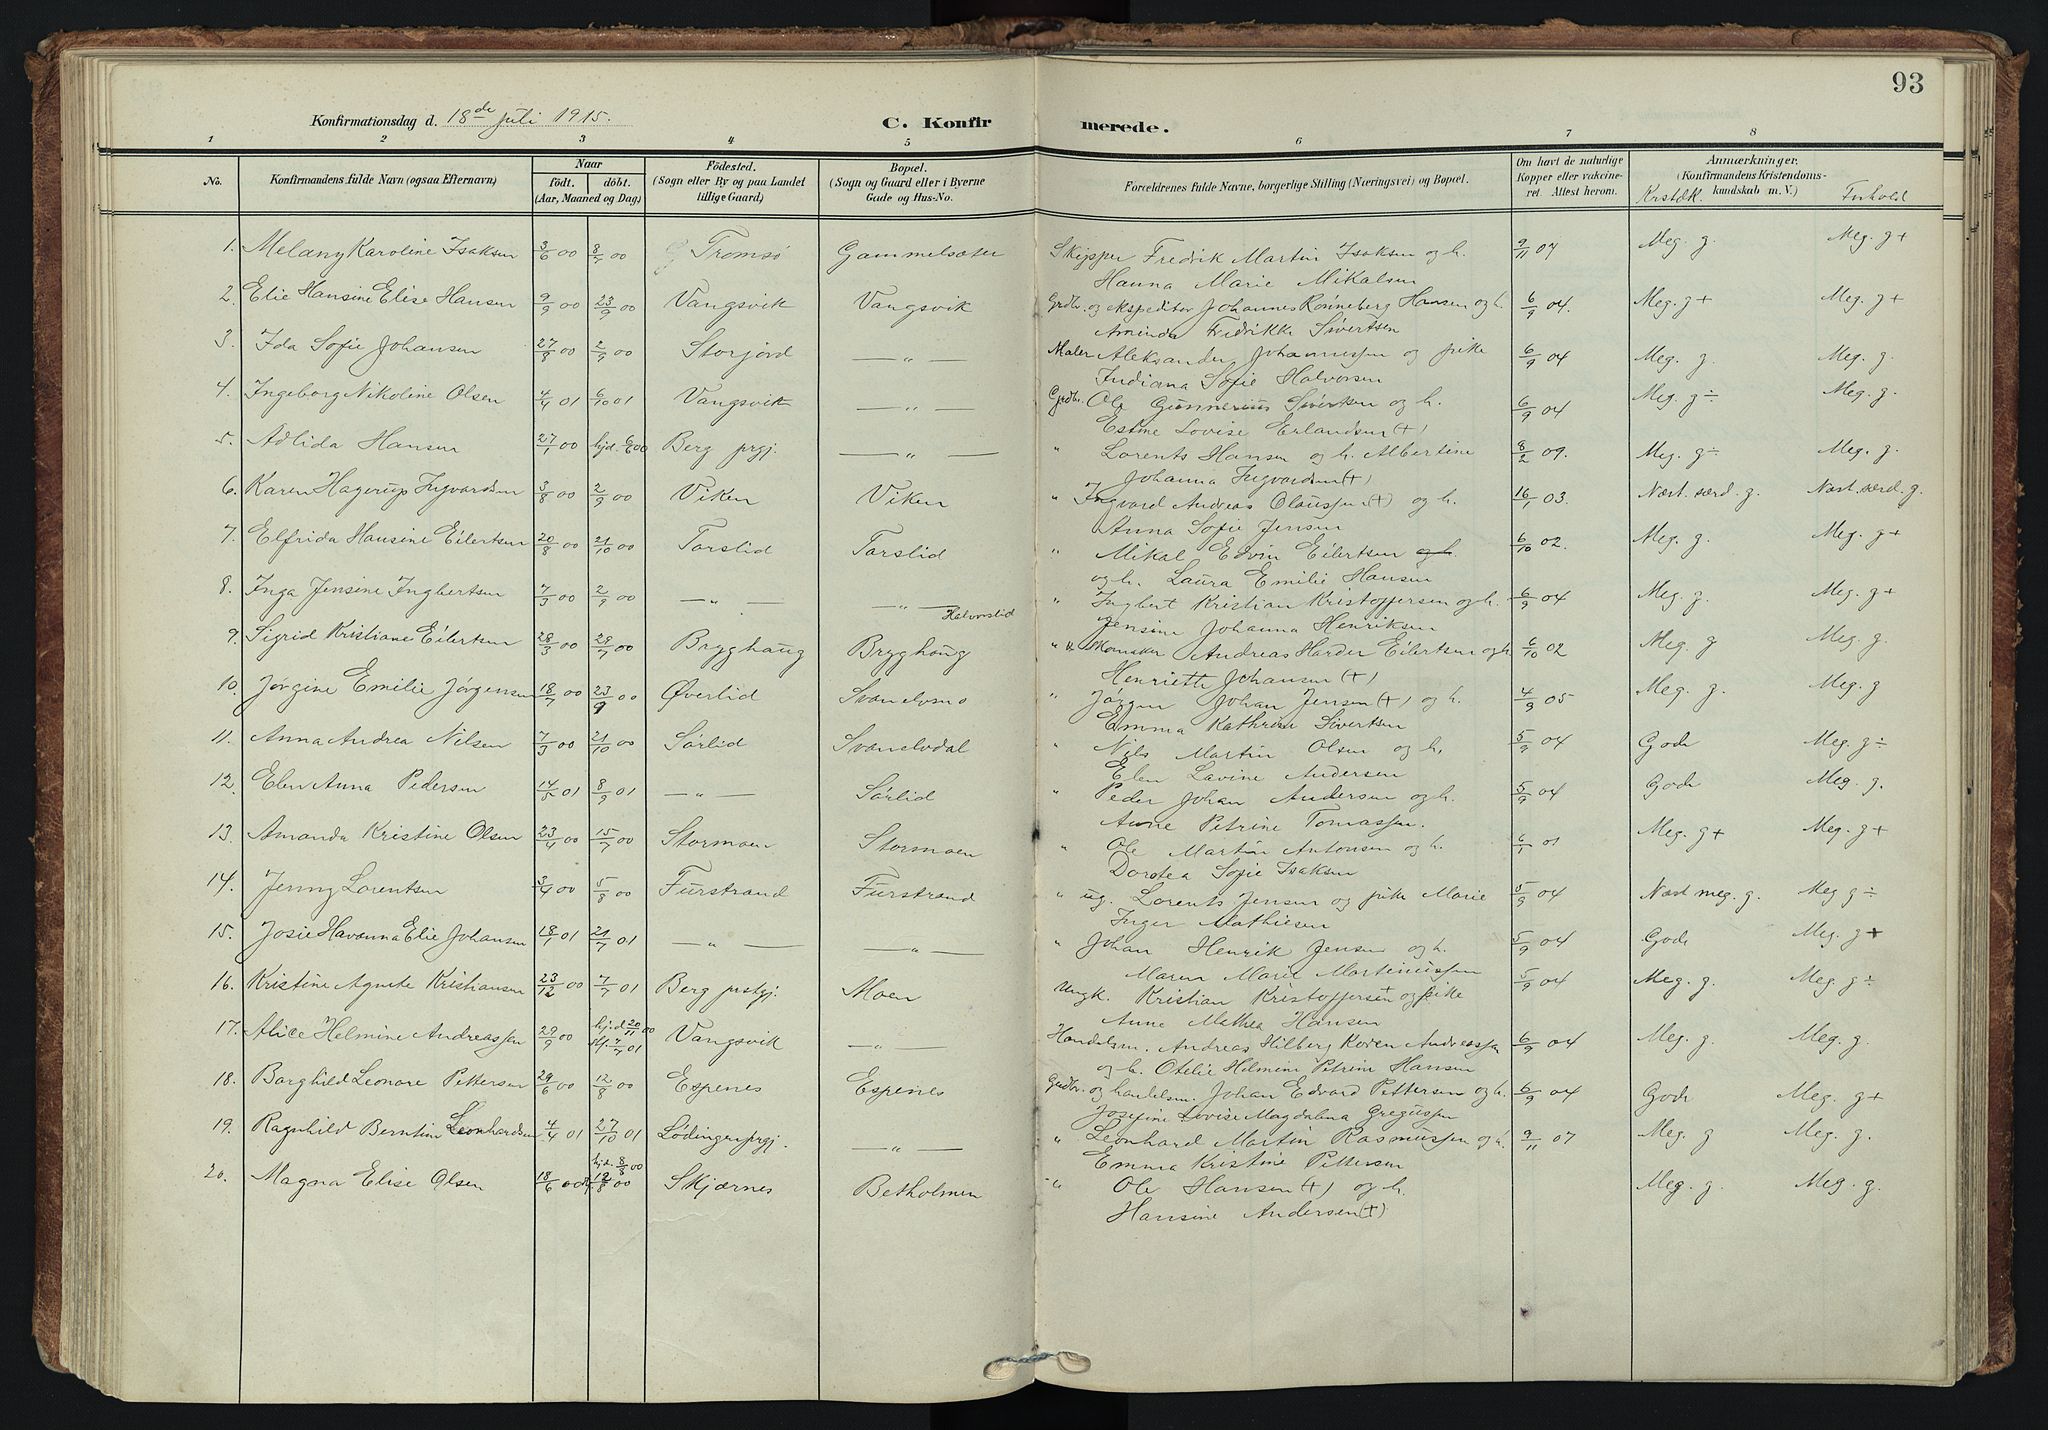 93
Konfirmationsdag d. 18de Juli 1915.
C. Konfirmerede.
1 2 3 4 5 6 7 8
No.
Konfirmandens fulde Navn (ogsaa Efternavn)
Naar
födt. döbt.
(Aar, Maaned og Dag)
Födested.
(Sogn eller By og paa Landet
tillige Gaard)
Bopæl.
(Sogn og Gaard eller i Byerne
Gade og Hus-No.
Forældrenes fulde Navne, borgerlige Stilling (Næringsvei) og Bopæl.
Om havt de naturlige
Kopper eller vakcine-
ret. Attest herom.
Anmærkninger.
(Konfirmandens Kristendoms-
kundskab m. V.)
Krstdk. Forhold
1. Melany Karoline Isaksen 3/6 00 8/7 00 Tromsø Gammelsæter Skipper Fredrik Martin Isaksen og h. 9/11 07 Meg. g. Meg. g+
Hanna Marie Mikalsen
2. Elie Hansine Elise Hansen 9/9 00 23/9 00 Vangsvik Vangsvik Grdbr. og ekspeditør Johannes Rønneberg Hansen og h. 6/9 04 Meg. g+ Meg. g+
Aminda Fredrikke Sivertsen
3. Ida Sofie Johansen 27/8 00 2/9 00 Storjord — " — Maler Aleksander Johannessen og pike 6/9 04 Meg. g. Meg. g.
Indiana Sofie Halvorsen
4. Ingeborg Nikoline Olsen 4/4 01 6/10 01 Vangsvik — " — Grdbr. Ole Gunnerius Sivertsen og h. 6/9 04 Meg. g÷ Meg. g.
Estine Lovise Erlandsen (+)
5. Adlida Hansen 27/1 00 hjd. 6/6 00 Berg prgj. — " — " Lorents Hansen og h. Albertine 8/2 09. Meg. g÷ Meg. g.
Johanna Ingvardsen (+)
6. Karen Hagerup Ingvardsen 3/8 00 2/9 00 Viken Viken " Ingvard Andreas Olaussen (+) og h. 16/1 03. Næst. særd. g. Næst. særd. g.
Anna Sofie Jensen
7. Elfrida Hansine Eilertsen 20/8 00 21/10 00 Torslid Torslid " Mikal Edvin Eilertsen og h. 6/10 02. Meg. g. Meg. g+
og h. Laura Emilie Hansen
8. Inga Jensine Ingbertsen 7/3 00 2/9 00 — " — — " — " Ingbert Kristian Kristoffersen og h. 6/9 04 Meg. g. Meg. g+
Jensine Johanna Henriksen
9. Sigrid Kristiane Eilertsen 28/3 00 29/7 00 Bryghaug Bryghaug " Andreas Harder Eilertsen og h 6/10 02 Meg. g Meg. g.
Henriette Johansen (+)
10. Jørgine Emilie Jørgensen 18/7 00 23/9 00 Øverlid " Jørgen Johan Jensen (+) og h. 4/9 05 Meg. g. Meg. g
Emma Kathrine Sivertsen
11. Anna Andrea Nilsen 7/3 00 21/10 00 Sørlid " Nils Martin Olsen og h. 5/9 04 Gode Meg. g÷
Elen Lavine Andersen
12. Elen Anna Pedersen 14/5 01 8/9 01 — " — Sørlid " Peder Johan Andersen og h. 5/9 04 Gode Meg. g.
Anne Petrine Tomassen.
13. Amanda Kristine Olsen 23/4 00 15/7 00 Stormoen Stormoen " Ole Martin Antonsen og h. 6/1 01 Meg. g+ Meg. g+
Dorotea Sofie Isaksen
14. Jenny Lorentsen 3/4 00 5/8 00 Furstrand Furstrand " ug. Lorents Jensen og pike Marie 5/9 04 Næst meg. g. Meg g÷
Inger Mathiesen
15. Josie Havanna Elie Johansen 18/1 01 21/7 01 — " — — " — " Johan Henrik Jensen og h. 5/9 04 Gode Meg. g+
Maren Marie Martinussen
16. Kristine Agnete Kristiansen 23/12 00 7/7 01 Berg prstgj. Moen Ungk. Kristian Kristoffersen og pike 5/9 04 Meg. g. Meg. g÷
Anne Mathea Hansen
17. Alice Helmine Andreassen 29/9 00 hj.d. 20/11 00 Vangsvik — " — Handelsm. Andreas Hilberg Koren Andreassen 6/9 04 Meg. g. Meg. g.
7/7 01
og h. Otelie Helmine Petrine Hansen
18. Borghild Leonore Pettersen 29/6 00 12/8 00 Espenes Espenes Grdbr. og handelsm. Johan Edvard Pettersen og h. 6/9 04 Gode Meg. g+
Josefine Lovise Magdalena Gregussen
19. Ragnhild Berntine Leonhardsen 4/4 01 27/10 01 Lødingen prgj. — " — " Leonhard Martin Rasmussen og h. 9/11 07 Meg. g Meg. g.
Emma Kristine Pettersen
20. Magna Elise Olsen 18/6 00 hjd. 8/8 00 12/8 00 Skjærnes Betholmen " Ole Hansen (+) og h. Meg. g. Meg. g.
Hansine Andersen (+)